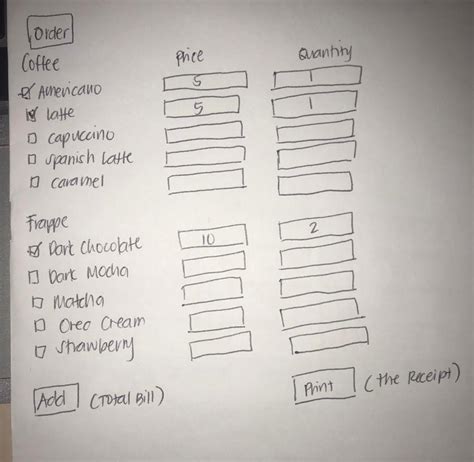 Order
Coffee Price Quantity
Americano 5 1
Latte 5 1
capuccino
Spanish Latte
caramel
Frappe
Dark Chocolate 10 2
Dark Mocha
Matcha
Oreo Cream
Strawberry
Add (Total Bill) Print (the Receipt)